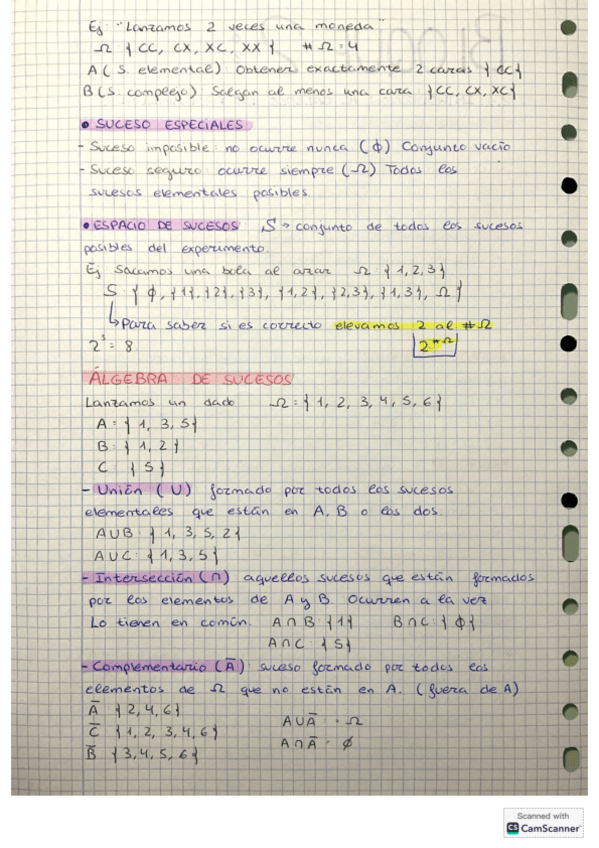 Ej "Lanzamos 2 veces una moneda"
Ω {CC, CX, XC, XX} #Ω=4
A (S. elemental) Obtener exactamente 2 caras {CC}
B (S. complejo) Salgan al menos una cara {CC, CX, XC}
• SUCESO ESPECIALES
- Suceso imposible: no ocurre nunca (ϕ) Conjunto vacío
- Suceso seguro: ocurre siempre (Ω) Todos los
sucesos elementales posibles.
• ESPACIO DE SUCESOS S → conjunto de todos los sucesos
posibles del experimento.
Ej Sacamos una bola al azar Ω {1,2,3}
S: {ϕ, {1}, {2}, {3}, {1,2}, {2,3}, {1,3}, Ω}
↳ Para saber si es correcto elevamos 2 al #Ω
2³ = 8 2^#Ω
ÁLGEBRA DE SUCESOS
Lanzamos un dado Ω = {1, 2, 3, 4, 5, 6}
A = {1, 3, 5}
B = {1, 2}
C {5}
- Unión (U) formado por todos los sucesos
elementales que están en A, B o los dos.
A∪B: {1, 3, 5, 2}
A∪C: {1, 3, 5}
- Intersección (∩) aquellos sucesos que están formados
por los elementos de A y B. Ocurren a la vez
Lo tienen en común. A∩B: {1} B∩C: {ϕ}
A∩C: {5}
- Complementario (Ā) suceso formado por todos los
elementos de Ω que no están en A. (fuera de A)
Ā {2, 4, 6} A∪Ā = Ω
C̄ {1, 2, 3, 4, 6} A∩Ā = ϕ
B̄ {3, 4, 5, 6}
Scanned with
CS CamScanner